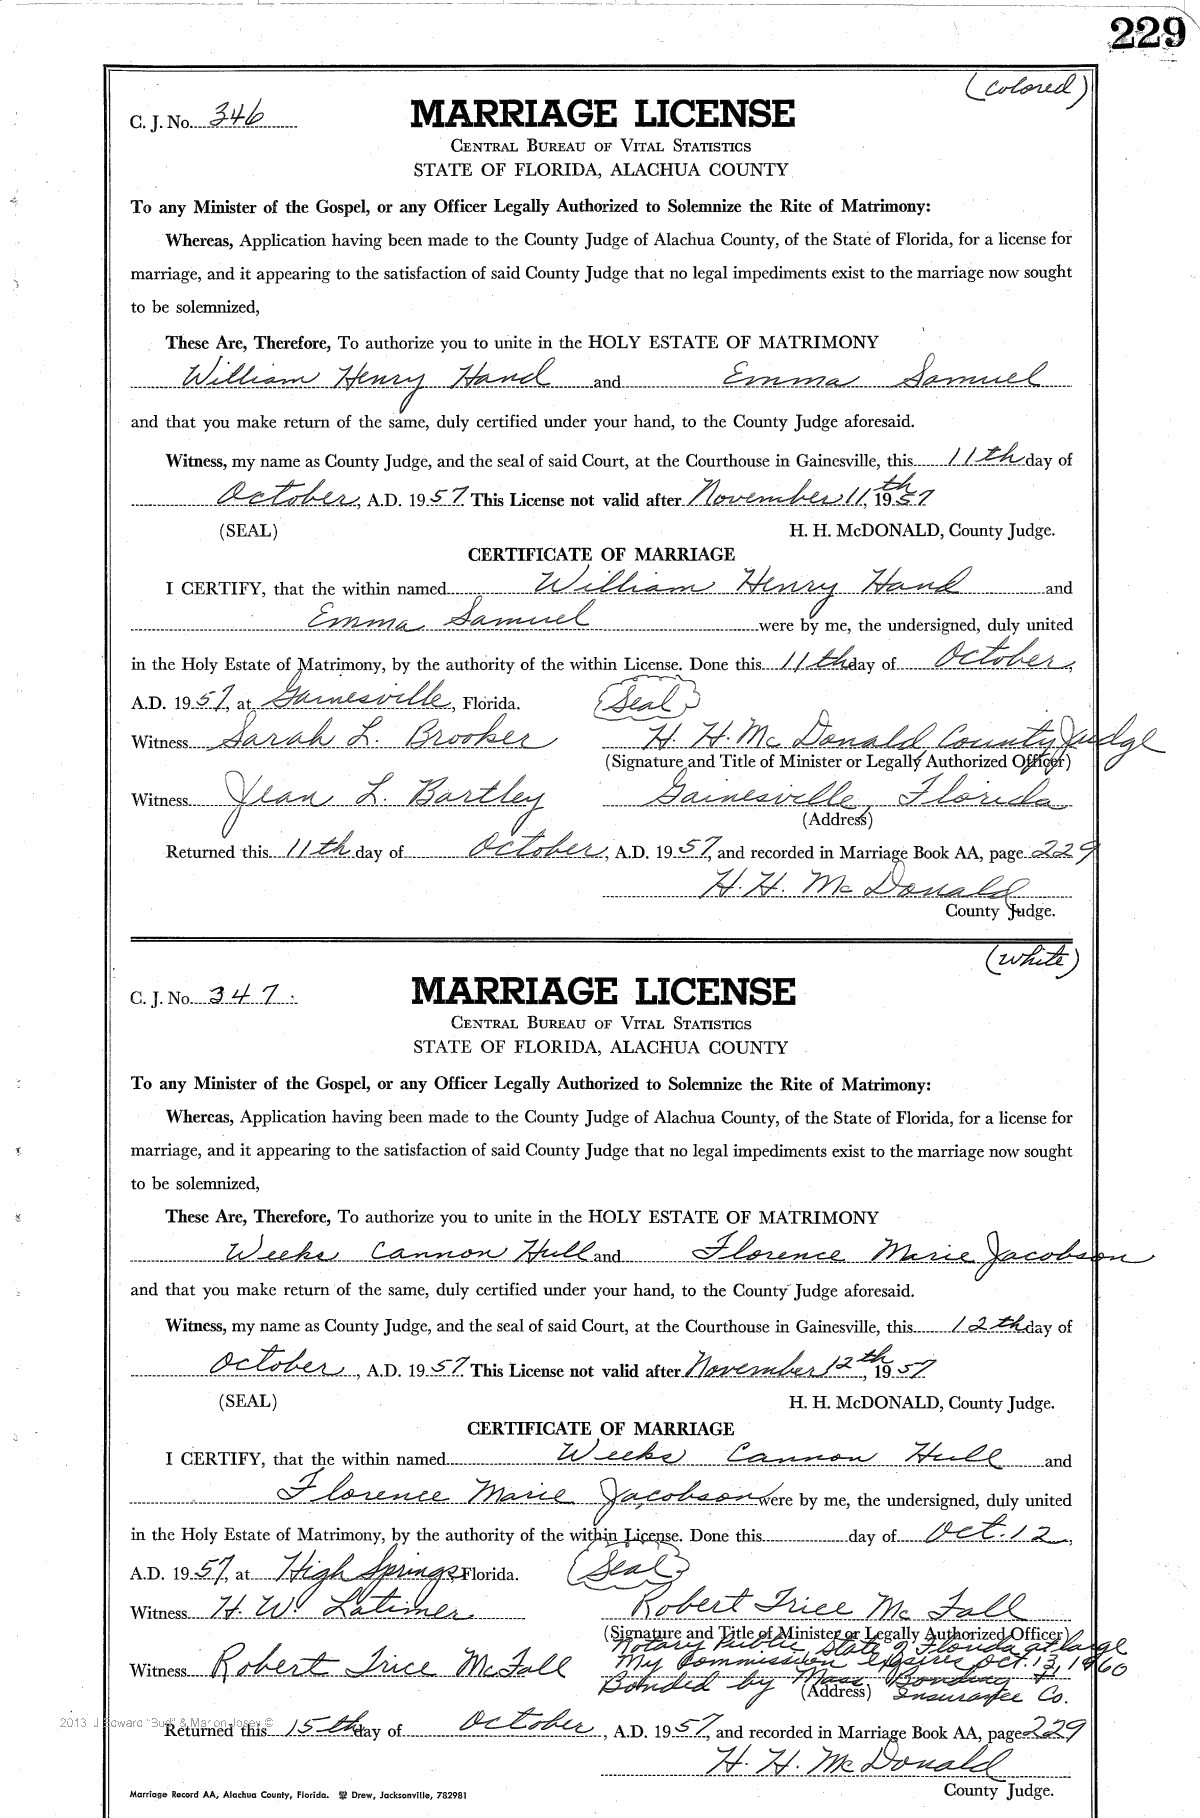 229
(colored)
C. J. No. 346
MARRIAGE LICENSE
CENTRAL BUREAU OF VITAL STATISTICS
STATE OF FLORIDA, ALACHUA COUNTY
To any Minister of the Gospel, or any Officer Legally Authorized to Solemnize the Rite of Matrimony:
Whereas, Application having been made to the County Judge of Alachua County, of the State of Florida, for a license for
marriage, and it appearing to the satisfaction of said County Judge that no legal impediments exist to the marriage now sought
to be solemnized,
These Are, Therefore, To authorize you to unite in the HOLY ESTATE OF MATRIMONY
William Henry Hand and Emma Samuel
and that you make return of the same, duly certified under your hand, to the County Judge aforesaid.
Witness, my name as County Judge, and the seal of said Court, at the Courthouse in Gainesville, this 11th day of
October, A.D. 1957. This License not valid after November 11th, 1957
(SEAL) H. H. McDONALD, County Judge.
CERTIFICATE OF MARRIAGE
I CERTIFY, that the within named William Henry Hand and
Emma Samuel were by me, the undersigned, duly united
in the Holy Estate of Matrimony, by the authority of the within License. Done this 11th day of October,
A.D. 1957, at Gainesville, Florida. (Seal)
Witness Sarah L. Brooker H. H. McDonald County Judge
(Signature and Title of Minister or Legally Authorized Officer)
Witness Jean L. Bartley Gainesville, Florida
(Address)
Returned this 11th day of October, A.D. 1957, and recorded in Marriage Book AA, page 229
H. H. McDonald
County Judge.
(white)
C. J. No. 347.
MARRIAGE LICENSE
CENTRAL BUREAU OF VITAL STATISTICS
STATE OF FLORIDA, ALACHUA COUNTY
To any Minister of the Gospel, or any Officer Legally Authorized to Solemnize the Rite of Matrimony:
Whereas, Application having been made to the County Judge of Alachua County, of the State of Florida, for a license for
marriage, and it appearing to the satisfaction of said County Judge that no legal impediments exist to the marriage now sought
to be solemnized,
These Are, Therefore, To authorize you to unite in the HOLY ESTATE OF MATRIMONY
Weeks Cannon Hull and Florence Marie Jacobson
and that you make return of the same, duly certified under your hand, to the County Judge aforesaid.
Witness, my name as County Judge, and the seal of said Court, at the Courthouse in Gainesville, this 12th day of
October, A.D. 1957. This License not valid after November 12th, 1957
(SEAL) H. H. McDONALD, County Judge.
CERTIFICATE OF MARRIAGE
I CERTIFY, that the within named Weeks Cannon Hull and
Florence Marie Jacobson were by me, the undersigned, duly united
in the Holy Estate of Matrimony, by the authority of the within License. Done this day of Oct. 12,
A.D. 1957, at High Springs, Florida. (Seal)
Witness H. W. Latimer Robert Trice McFall
(Signature and Title of Minister or Legally Authorized Officer)
Notary Public State of Florida at large
Witness Robert Trice McFall My Commission expires Oct. 13, 1960
Bonded by Mass. Bonding & Insurance Co.
(Address)
2013 J Edward "Bud" & Marion Josey ©
Returned this 15th day of October, A.D. 1957, and recorded in Marriage Book AA, page 229
H. H. McDonald
County Judge.
Marriage Record AA, Alachua County, Florida. Drew, Jacksonville, 782981